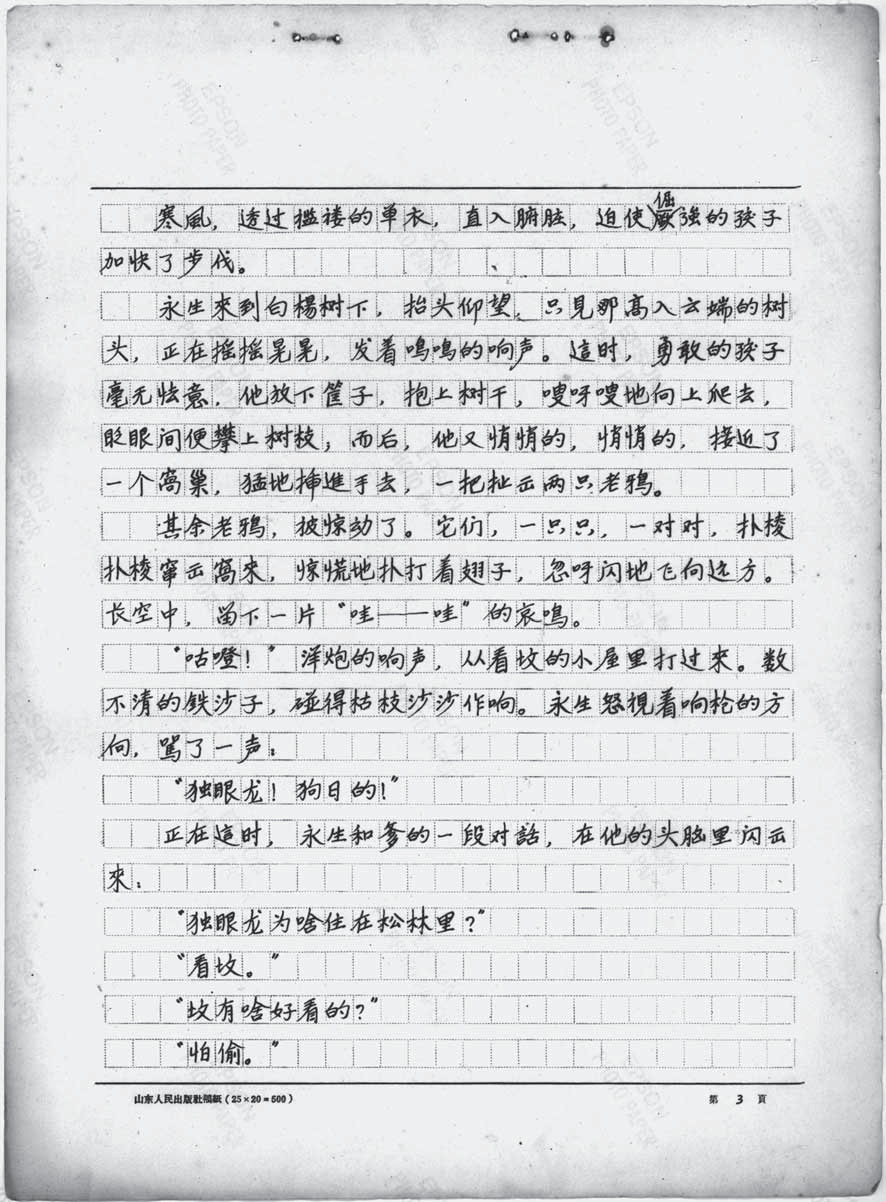 寒風，透过褴褛的单衣，直入腑脏，迫使倔强的孩子
加快了步伐。
永生來到白楊树下，抬头仰望，只見那高入云端的树
头，正在摇摇晃晃，发着鳴鳴的响声。這时，勇敢的孩子
毫无怯意，他放下筐子，抱上树干，嗖呀嗖地向上爬去，
眨眼间便攀上树枝；而后，他又悄悄的，悄悄的，接近了
一个窩巢，猛地挿進手去，一把扯出两只老鸦。
其余老鸦，被惊动了。它们，一只只，一对对，扑棱
扑棱窜出窩來，惊慌地扑打着翅子，忽呀闪地飞向远方。
长空中，留下一片“哇——哇”的哀鳴。
“咕噔！”洋炮的响声，从看坟的小屋里打过來。数
不清的铁沙子，碰得枯枝沙沙作响。永生怒視着响枪的方
向，駡了一声：
“独眼龙！狗日的！”
正在這时，永生和爹的一段对話，在他的头脑里闪出
來：
“独眼龙为啥住在松林里？”
“看坟。”
“坟有啥好看的？”
“怕偷。”
山东人民出版社稿紙（25×20=500）
第 3 頁
EPSON
PHOTO PAPER